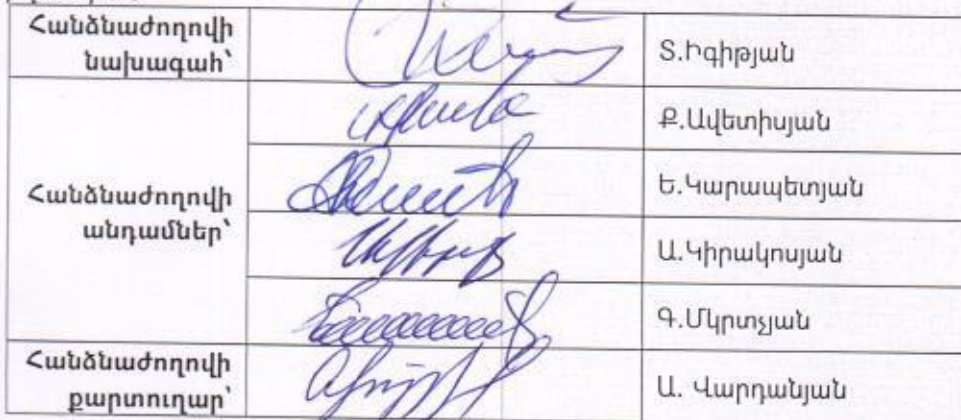 Հանձնաժողովի
նախագահ՝
Տ.Իգիթյան
Ք.Ավետիսյան
Հանձնաժողովի
անդամներ՝
Ե.Կարապետյան
Ա.Կիրակոսյան
Գ.Մկրտչյան
Հանձնաժողովի
քարտուղար՝
Ա. Վարդանյան